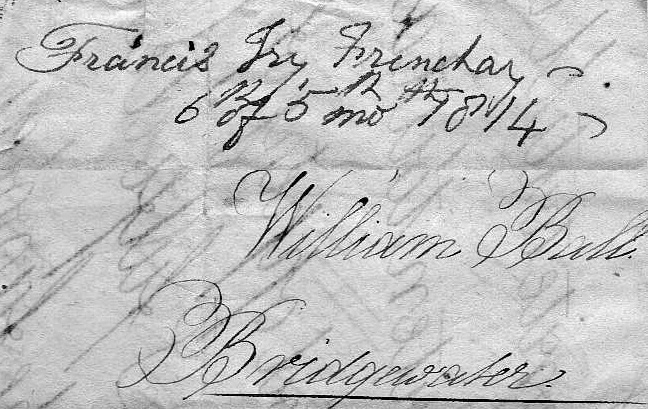 Francis Fry Frenchay
6th of 5th mo 1814
William Ball.
Bridgewater.